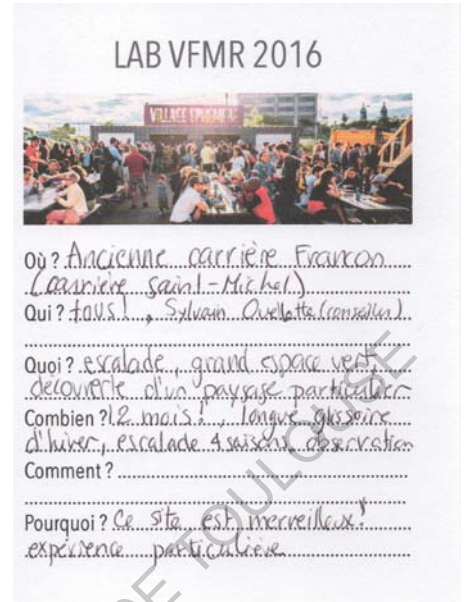 LAB VFMR 2016
VILLAGE ÉPHÉMÈRE
Où ? Ancienne carrière Francon
(carrière Saint-Michel)
Qui ? tous ! , Sylvain Ouellette (conseiller)
Quoi ? escalade, grand espace vert,
découverte d'un paysage particulier
Combien ? 12 mois ! , longue glissoire
d'hiver, escalade 4 saisons, observation
Comment ?
Pourquoi ? Ce site est merveilleux !
expérience particulière
DE TOULOUSE